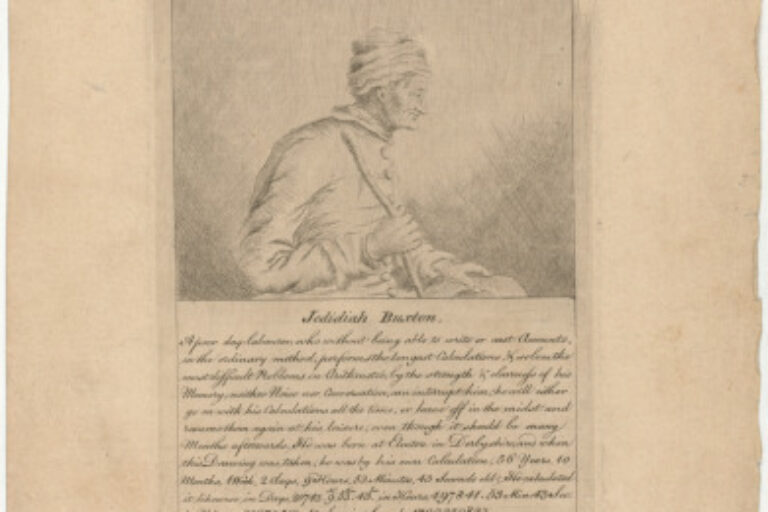 Jedidiah Buxton.
A poor day-labourer, who without being able to write or cast Accounts,
in the ordinary method, performs the longest Calculations, & solves the
most difficult Problems in Arithmetic, by the strength & clearness of his
Memory, neither Noise nor Conversation, can interrupt him, he will either
go on with his Calculations all the time, or leave off in the midst and
resume them again at his leisure, even though it should be many
Months afterwards. He was born at Elmton in Derbyshire, and when
this Drawing was taken, he was by his own Calculation, 56 Years, 10
Months, 1 Week, 2 Days, 9 Hours, 53 Minutes, 43 Seconds old; He calculated
it likewise in Days, in Hours, 497841. 53 Min: 43 Sec: